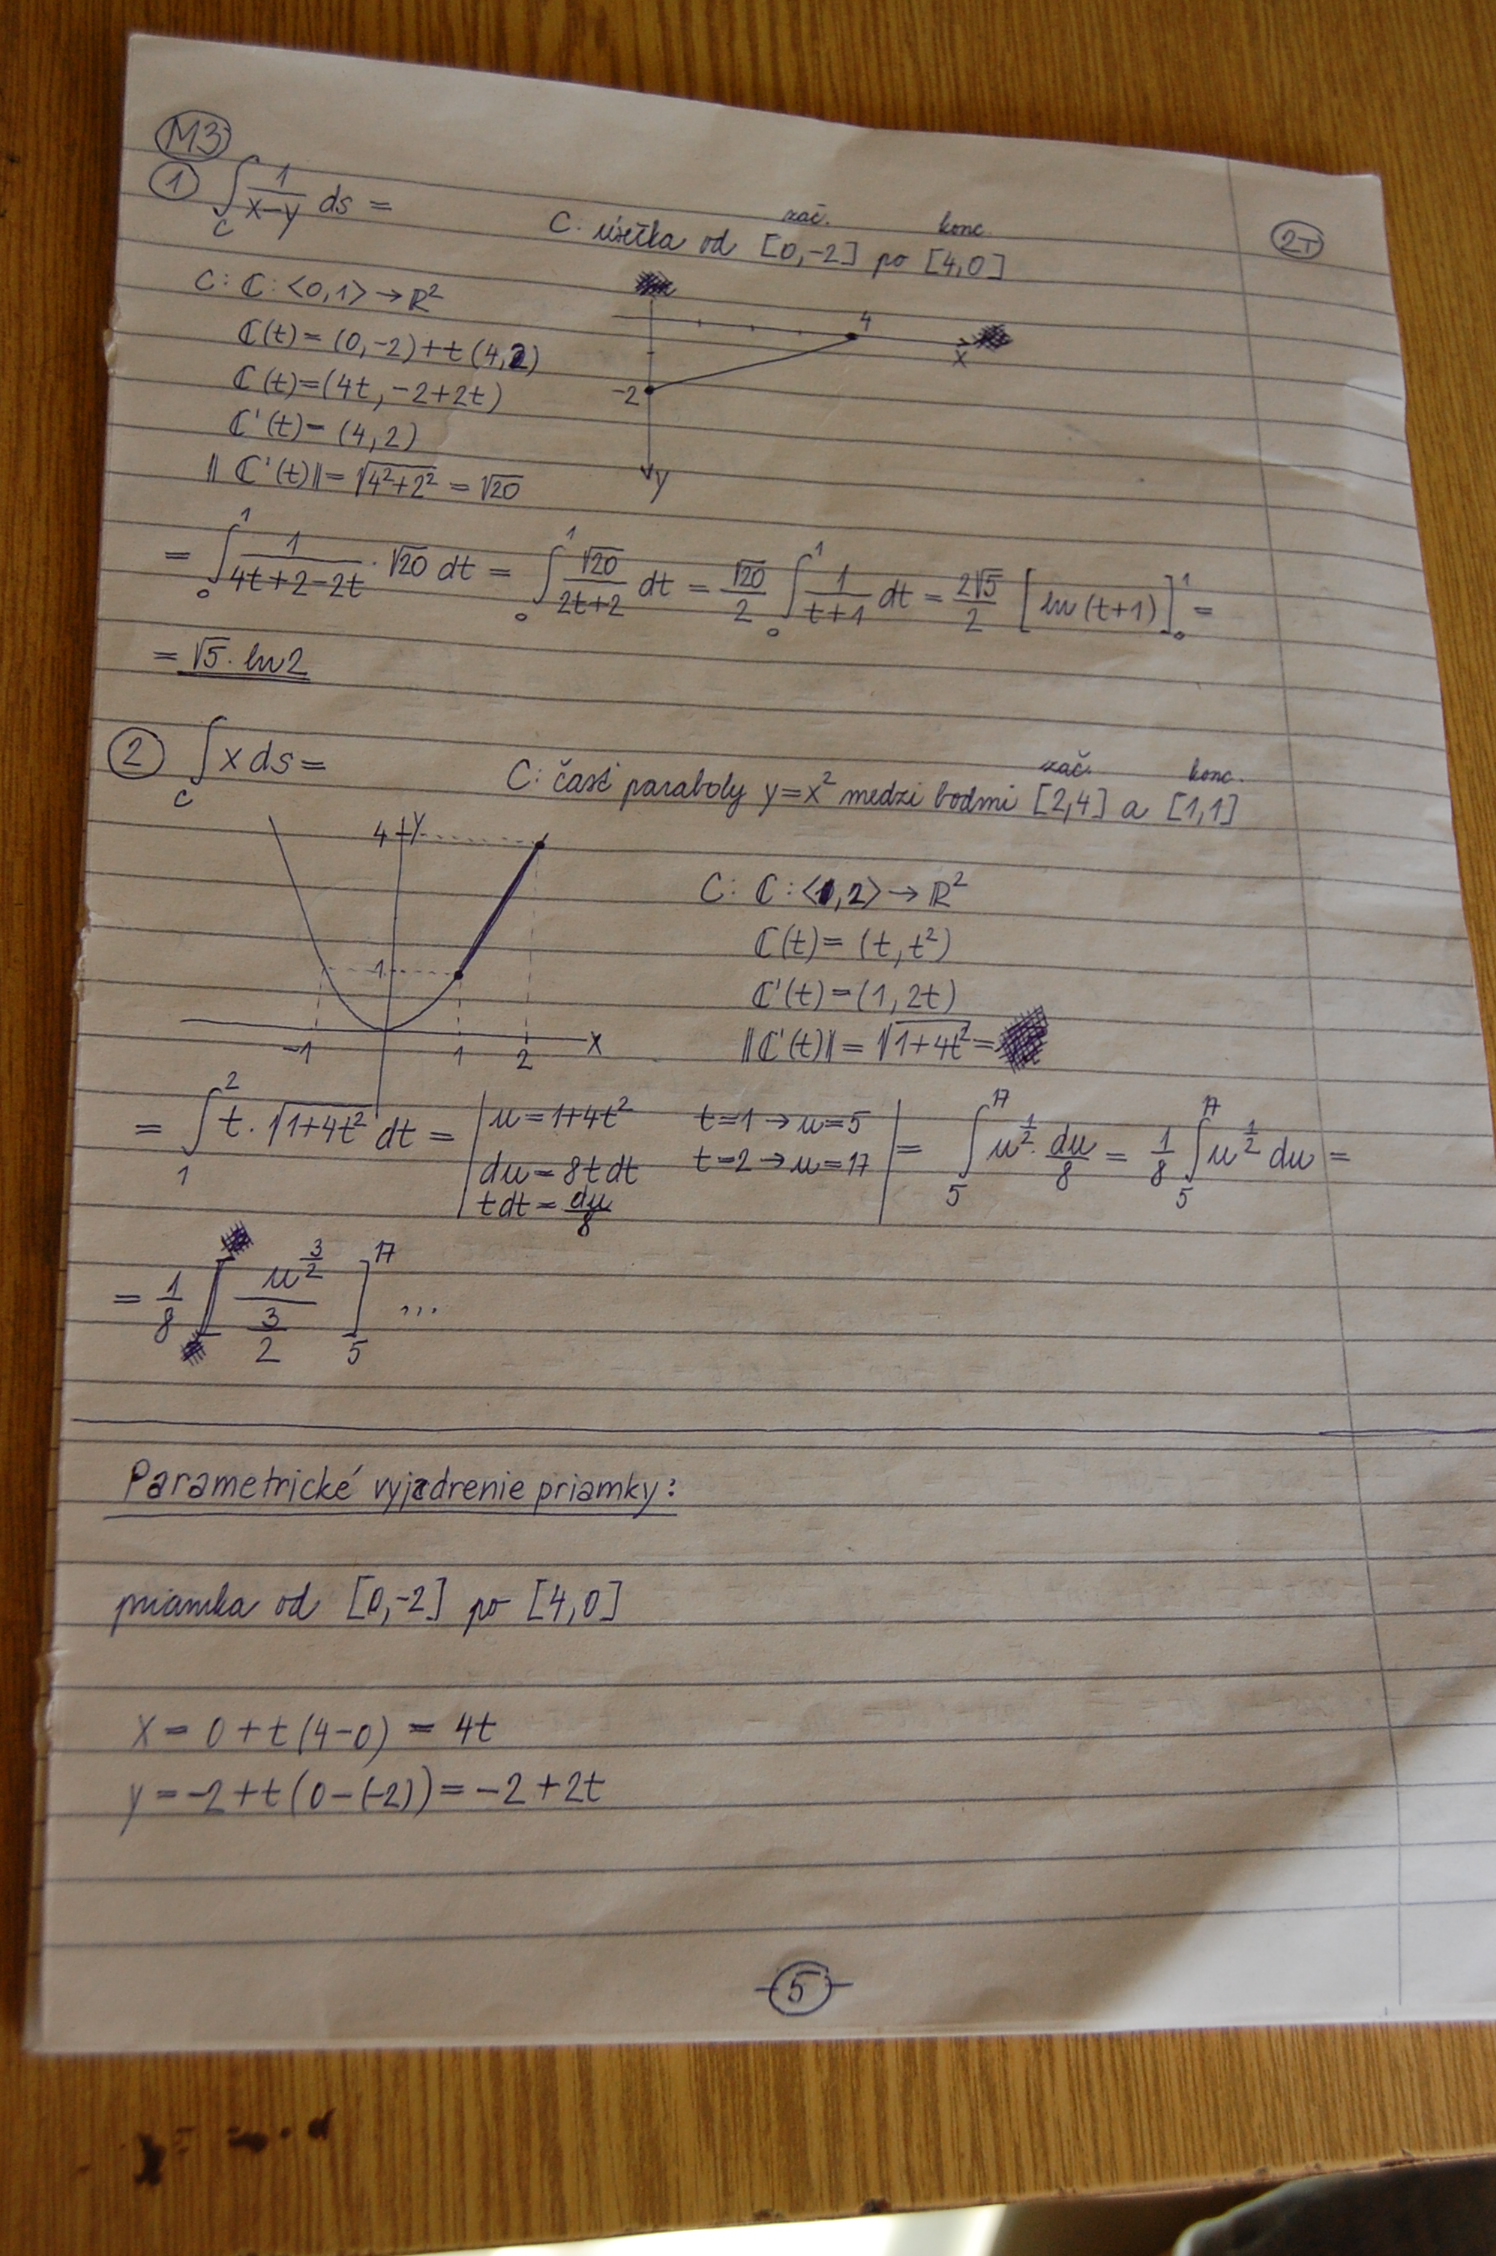 M3
① ∫_C 1/(x-y) ds =
zač. konc.
C: úsečka od [0,-2] po [4,0]
2T
C: ℂ: <0,1> → ℝ²
ℂ(t) = (0,-2)+t(4,2)
ℂ(t)=(4t, -2+2t)
ℂ'(t)= (4,2)
‖ℂ'(t)‖ = √(4²+2²) = √20
4
x
-2
y
= ∫₀¹ 1/(4t+2-2t) · √20 dt = ∫₀¹ √20/(2t+2) dt = √20/2 ∫₀¹ 1/(t+1) dt = 2√5/2 [ln(t+1)]₀¹ =
= √5 · ln2
② ∫_C x ds =
zač. konc.
C: časť paraboly y=x² medzi bodmi [2,4] a [1,1]
4 y
1
-1 1 2 x
C: ℂ: <1,2> → ℝ²
ℂ(t) = (t, t²)
ℂ'(t) = (1, 2t)
‖ℂ'(t)‖ = √(1+4t²) =
= ∫₁² t · √(1+4t²) dt = | u = 1+4t² t=1 → u=5 | = ∫₅¹⁷ u^(1/2) · du/8 = 1/8 ∫₅¹⁷ u^(1/2) du =
du = 8t dt t=2 → u=17
t dt = du/8
= 1/8 [u^(3/2) / (3/2)]₅¹⁷ ...
Parametrické vyjadrenie priamky:
priamka od [0,-2] po [4,0]
x = 0+t(4-0) = 4t
y = -2+t(0-(-2)) = -2+2t
-5-